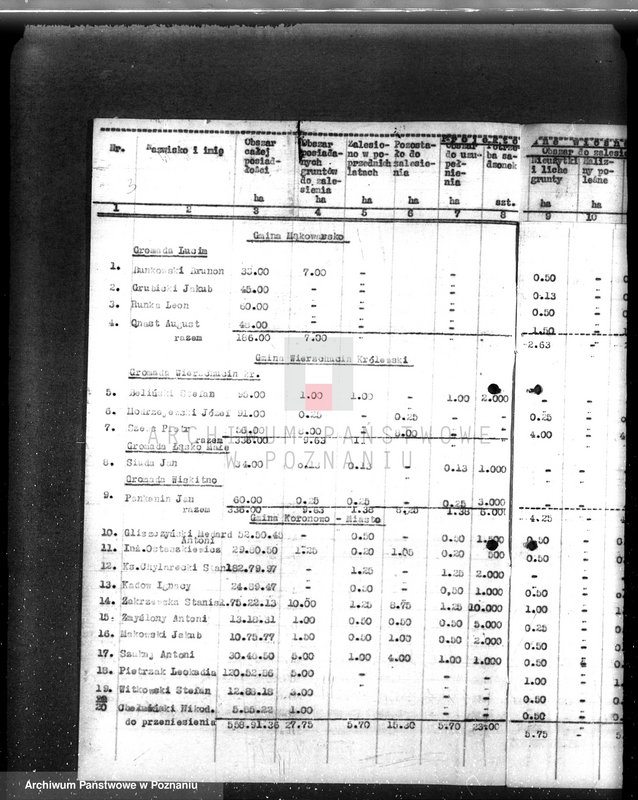 Nr. Nazwisko i imię Obszar całej posiadłości Obszar posiadanych gruntów do zalesienia Zalesiono w poprzednich latach Pozostało do zalesienia Obszar do uzupełnienia sadzonek Obszar do zalesie Nieużytki i liche grunty poleśne
ha ha ha ha ha szt. ha ha
1 2 3 4 5 6 7 8 9 10
Gmina Mąkowarsko
Gromada Lucim
1. Bunkowski Brunon 33.00 7.00 - - 0.50 -
2. Grubicki Jakub 45.00 - - - 0.13 -
3. Runka Leon 60.00 - - - 0.50 -
4. Qnast August 48.00 - - - 1.50 -
razem 186.00 7.00 2.63
Gmina Wierzchucin Królewski
Gromada Wierzchucin kr.
5. Beliński Stefan 1.00 1.00 - 1.00 2.000
6. Modrzejewski Józef 91.00 0.25 - 0.25 - - 0.25 -
7. Szews Piotr 4.00 -
razem 9.63
Gromada Łąsko Małe
8. Siuda Jan 0.13 - 0.13 1.000 - -
Gromada Wiskitno
9. Pankanin Jan 60.00 0.25 0.25 - 0.25 3.000
razem 336.00 9.63 1.38 8.25 1.38 4.25
Gmina Koronowo - Miasto
10. Gliszczyński Medard Antoni 52.50.45 - 0.50 - 0.50 0.50 -
11. Inż.Ostaszkiewicz 29.80.50 1.25 0.20 1.05 0.20 500 0.50 -
12. Ks.Chylarecki Stan. 182.79.97 - 1.25 - 1.25 2.000 - -
13. Kadow Ignacy 24.89.47 - 0.50 - 0.50 1.000 0.50 -
14. Zakrzewska Stanisł. 75.22.13 10.00 1.25 8.75 1.25 10.000 1.00 -
15. Zmyślony Antoni 13.18.31 1.00 0.50 0.50 0.50 5.000 0.25 -
16. Makowski Jakub 10.75.77 1.50 0.50 1.00 0.50 2.000 - -
17. Szukaj Antoni 30.48.50 5.00 1.00 4.00 1.00 1.000 0.50
18. Pietrzak Leokadia 120.52.86 5.00 - - - 1.00 -
19. Witkowski Stefan 12.88.18 3.00 - - 0.50 -
20 Nikod. 5.85.22 1.00 - - 0.50 -
do przeniesienia 558.91.36 27.75 5.70 15.30 5.70 23.00 5.75
ARCHIWUM PAŃSTWOWE
W POZNANIU
Archiwum Państwowe w Poznaniu